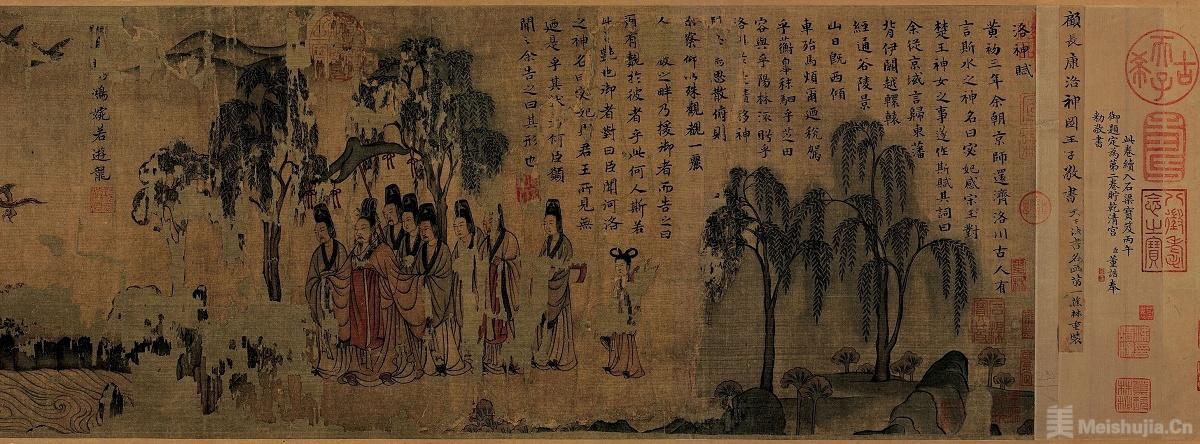 古希天子
八徵耄念之寶
此卷續入石渠寶笈丙午
御題定為第二卷貯乾清宮 臣董誥奉
勅敬書
顧長康洛神圖王子敬書 天下法書名畫第一蕉林重裝
洛神賦
黃初三年余朝京師還濟洛川古人有
言斯水之神名曰宓妃感宋玉對
楚王神女之事遂作斯賦其詞曰
余從京城言歸東藩
背伊闕越轘轅
經通谷陵景
山日既西傾
車殆馬煩爾迺稅駕
乎蘅皋秣駟乎芝田
容與乎陽林流眄乎
洛川於是精移神
思散俯則
未察仰以殊觀覩一麗
人之畔乃援御者而告之曰
爾有覿於彼者乎此何人斯若
此艷也御者對曰臣聞河洛
之神名曰宓妃則君王所見無
迺是乎其狀若何臣願
聞之余告之曰其形也
鴻婉若遊龍
美 Meishujia.Cn